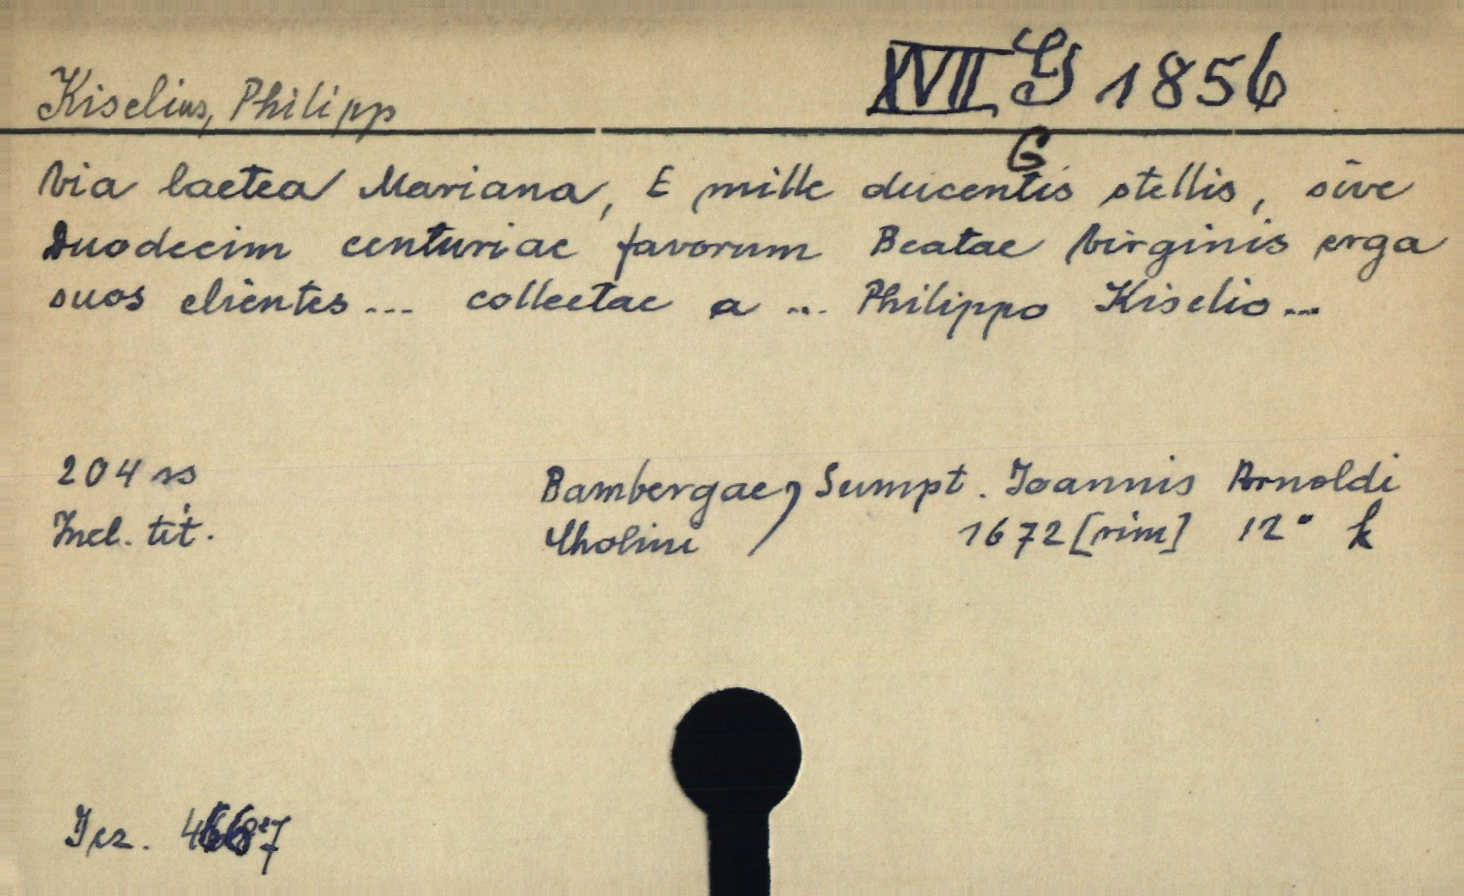 Kiselius, Philipp XVII G 1856
G
Via lactea Mariana, E mille ducentis stellis, sive
Duodecim centuriae favorum Beatae Virginis erga
suos clientes... collectae a ... Philippo Kiselio...
204 ss Bambergae, Sumpt. Joannis Arnoldi
Incl. tit. Cholini / 1672 [rim] 12° k
Jez.